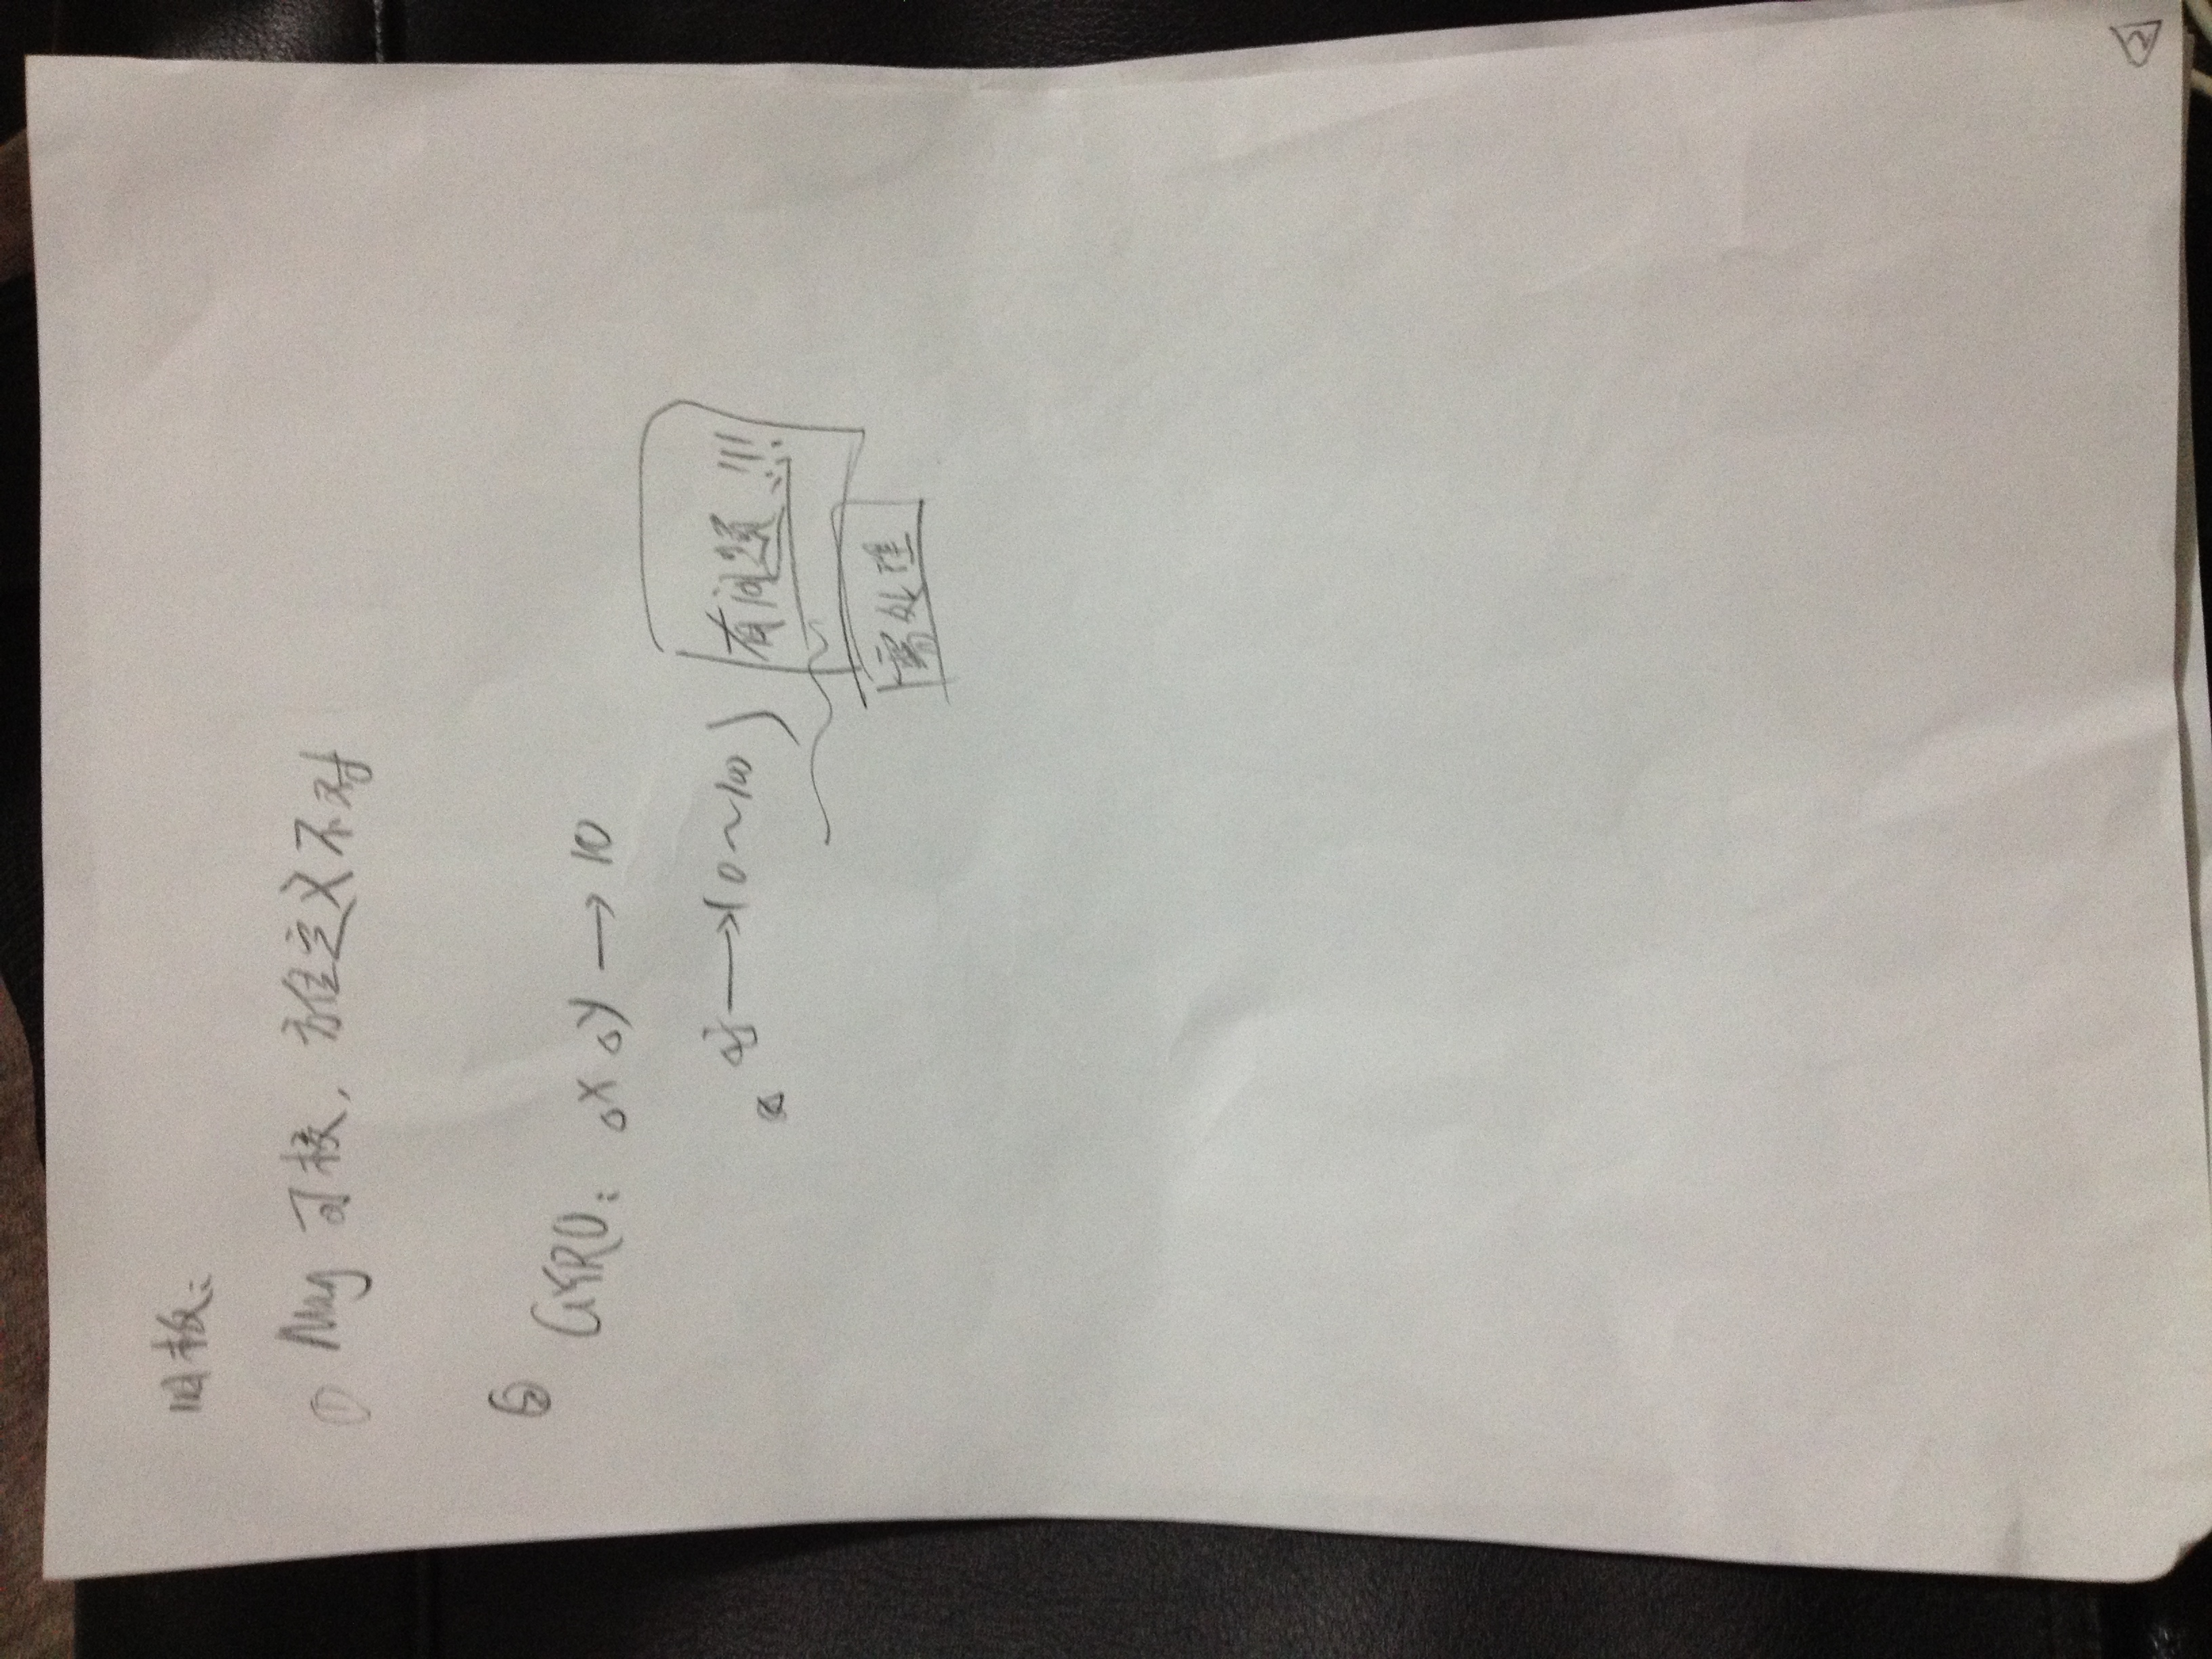 旧板:
① Mag 可校, 方位定义不对
②
GYRO: △X △Y → 10
△z → (0~100) 有问题!!!
需处理
2